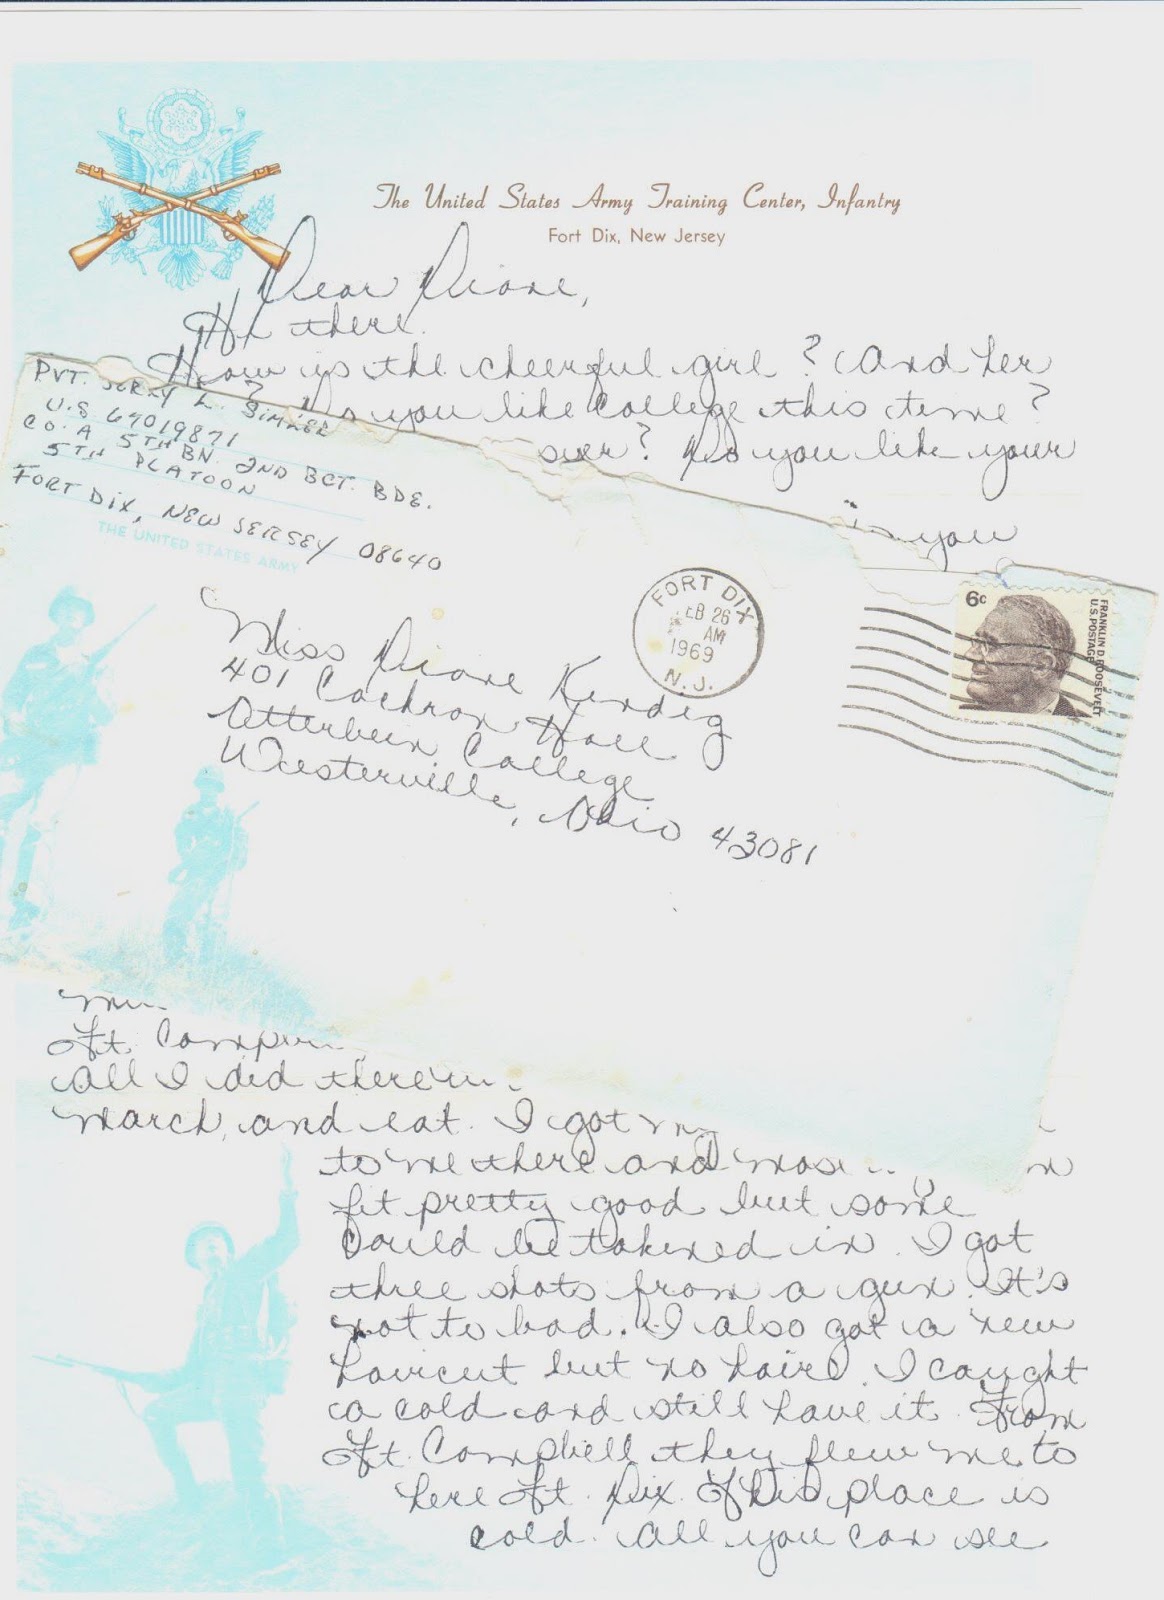 The United States Army Training Center, Infantry
Fort Dix, New Jersey
Dear Diane,
Hi there.
How is the cheerful girl? And her
? Do you like college this time?
over? Do you like your
in you
PVT. JERRY L.
U.S. 67019871
CO. A 5TH BN. 2ND BCT. BDE.
5TH PLATOON
FORT DIX, NEW JERSEY 08640
THE UNITED STATES ARMY
FORT DIX
FEB 26
AM
1969
N.J.
6c
FRANKLIN D. ROOSEVELT
U.S. POSTAGE
Miss Diane Kendig
401 Cochran Hall
Otterbein College
Westerville, Ohio 43081
Ft.
all I did there
march, and eat. I got
to me there and
fit pretty good but some
could be takened in. I got
three shots from a gun. It's
not to bad. I also got a new
haircut but no haire. I caught
a cold and still have it. From
Ft. Campbell they flew me to
here Ft. Dix. This place is
cold. All you can see